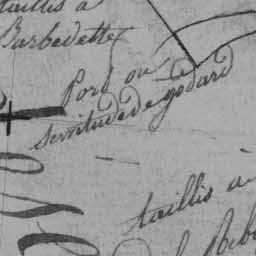 taillis à
Barbedette
Port ou
servitude de godard
taillis a